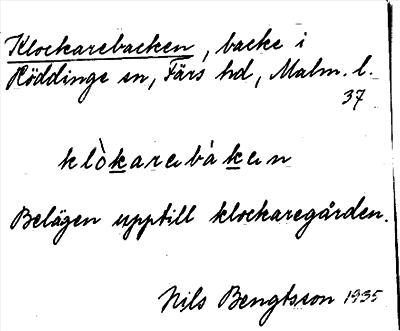 Klockarebacken, backe i
Röddinge sn, Färs hd, Malm. l.
37
klòkarebáken
Belägen upptill klockaregården.
Nils Bengtsson 1935